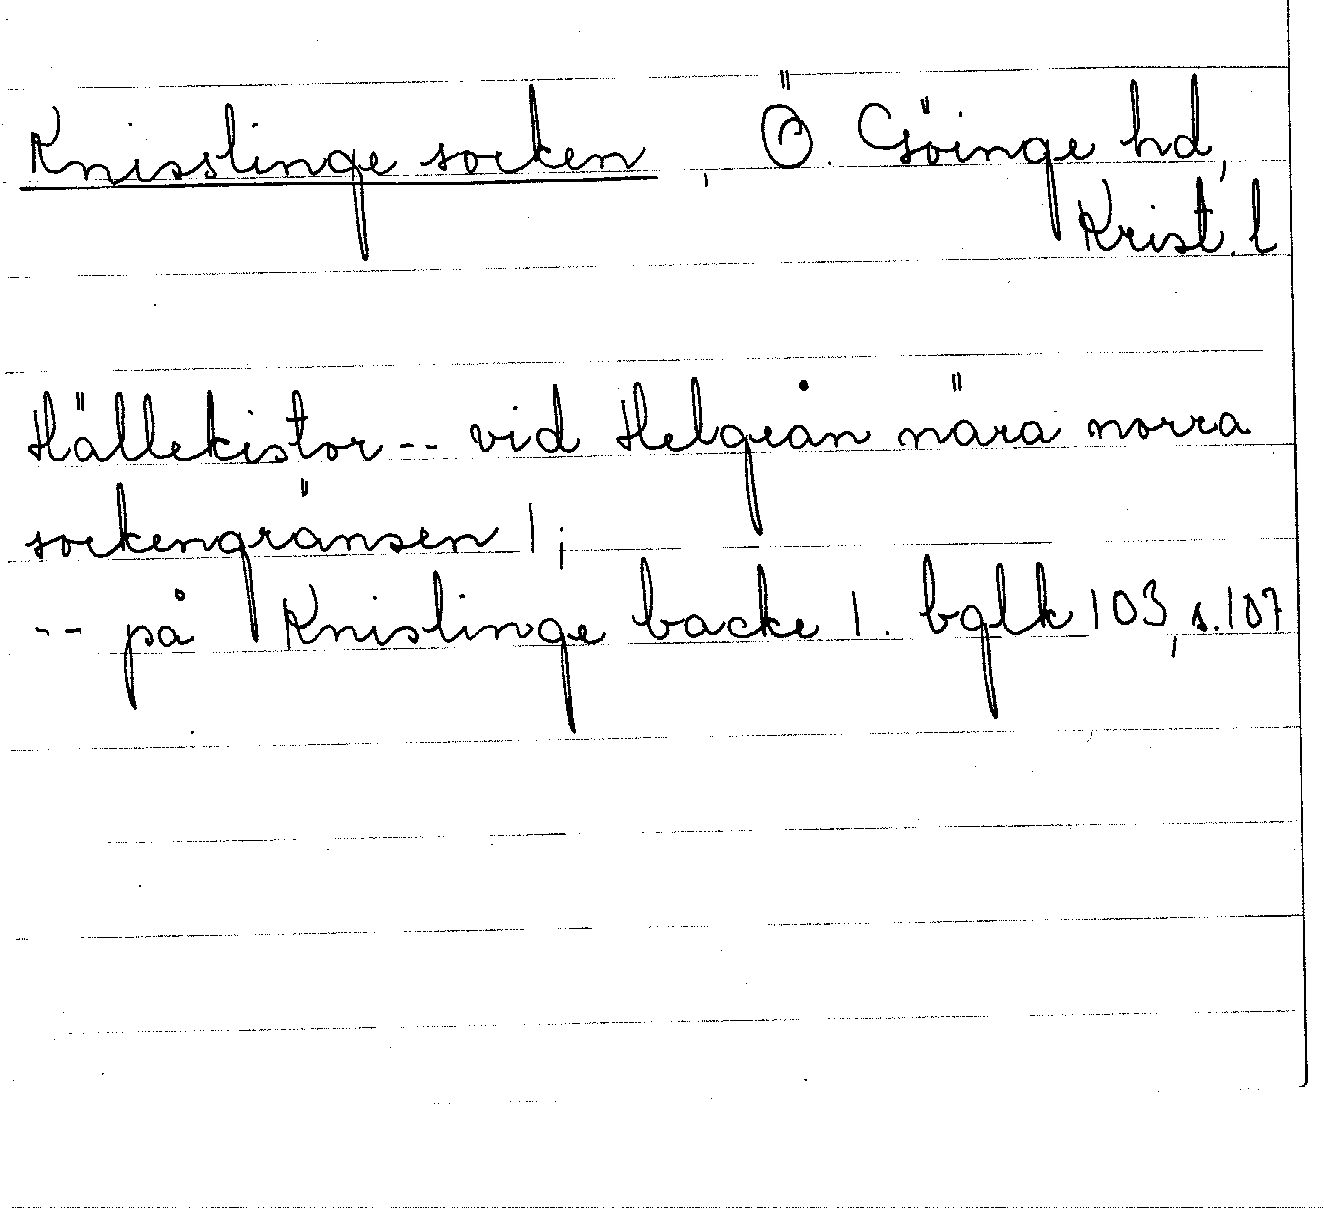 Knisslinge socken, Ö. Göinge hd,
Krist. l
Hällekistor -- vid Helgeån nära norra
sockengränsen 1;
-- på Knislinge backe 1. bglk 103, s. 107